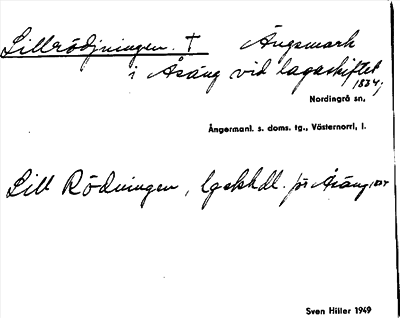 Lillrödjningen. † Ängsmark
i Åsäng vid lagaskiftet
1834;
Nordingrå sn,
Ångermanl. s. doms. tg., Västernorrl, l.
Lill Rödningen, lgskhdl. för Åsäng 1834
Sven Hiller 1949